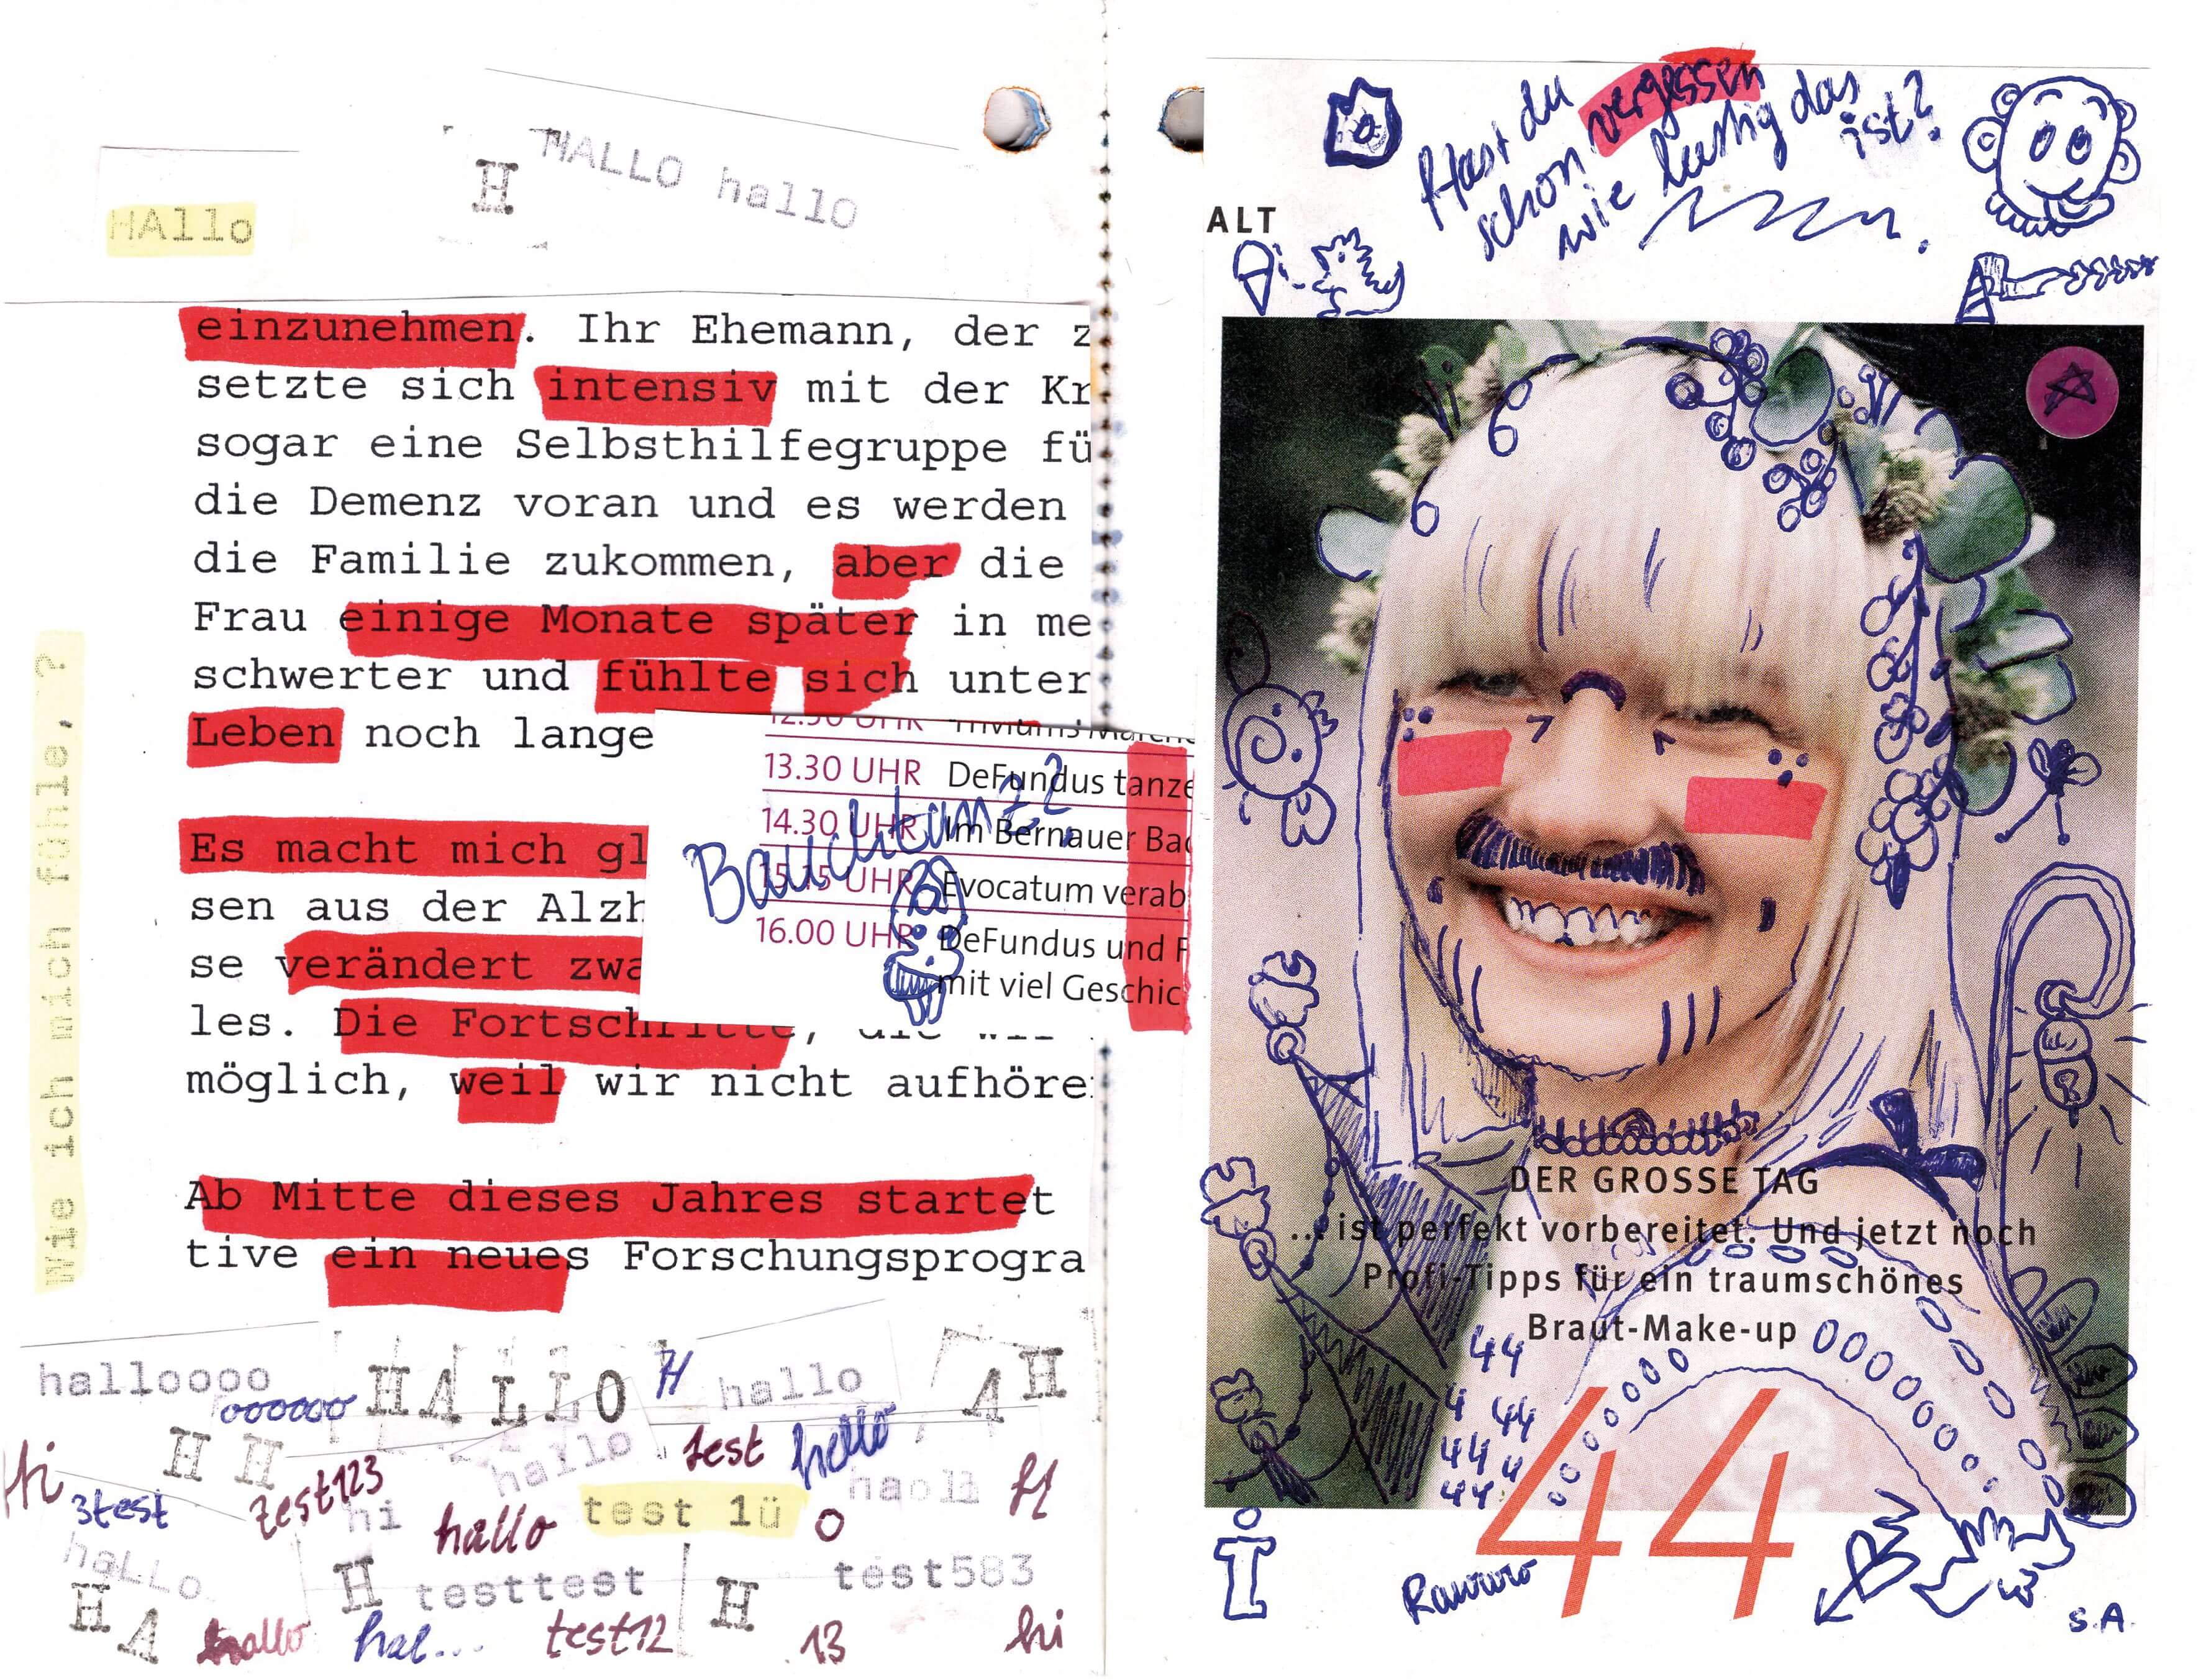 HAllo
H
HALLO hallo
einzunehmen. Ihr Ehemann, der z
setzte sich intensiv mit der Kr
sogar eine Selbsthilfegruppe fü
die Demenz voran und es werden
die Familie zukommen, aber die
Frau einige Monate später in me
schwerter und fühlte sich unter
Leben noch lange
Es macht mich gl
sen aus der Alzh
se verändert zwa
les. Die Fortschritte, die wir
möglich, weil wir nicht aufhöre
Ab Mitte dieses Jahres startet
tive ein neues Forschungsprogra
Wie ich mich fühle, ?
12.30 UHR
13.30 UHR DeFundus tanze
14.30 UHR Im Bernauer Bac
15.15 UHR Evocatum verab
16.00 UHR DeFundus und F
mit viel Geschic
Bauchtanz??
halloooo
oooooo
HALLO
H
hallo
A H
H H
hallo
test
hello
Hi
3test
test123
hi
hallo
test 1ü
O
H
haLLo
H
testtest
H
test583
H A
hallo
hal...
test12
13
hi
Hast du
schon vergessen
wie lustig das
ist?
ALT
DER GROSSE TAG
... ist perfekt vorbereitet. Und jetzt noch
Profi-Tipps für ein traumschönes
Braut-Make-up
44
4 44
44 4
44
44
S.A.